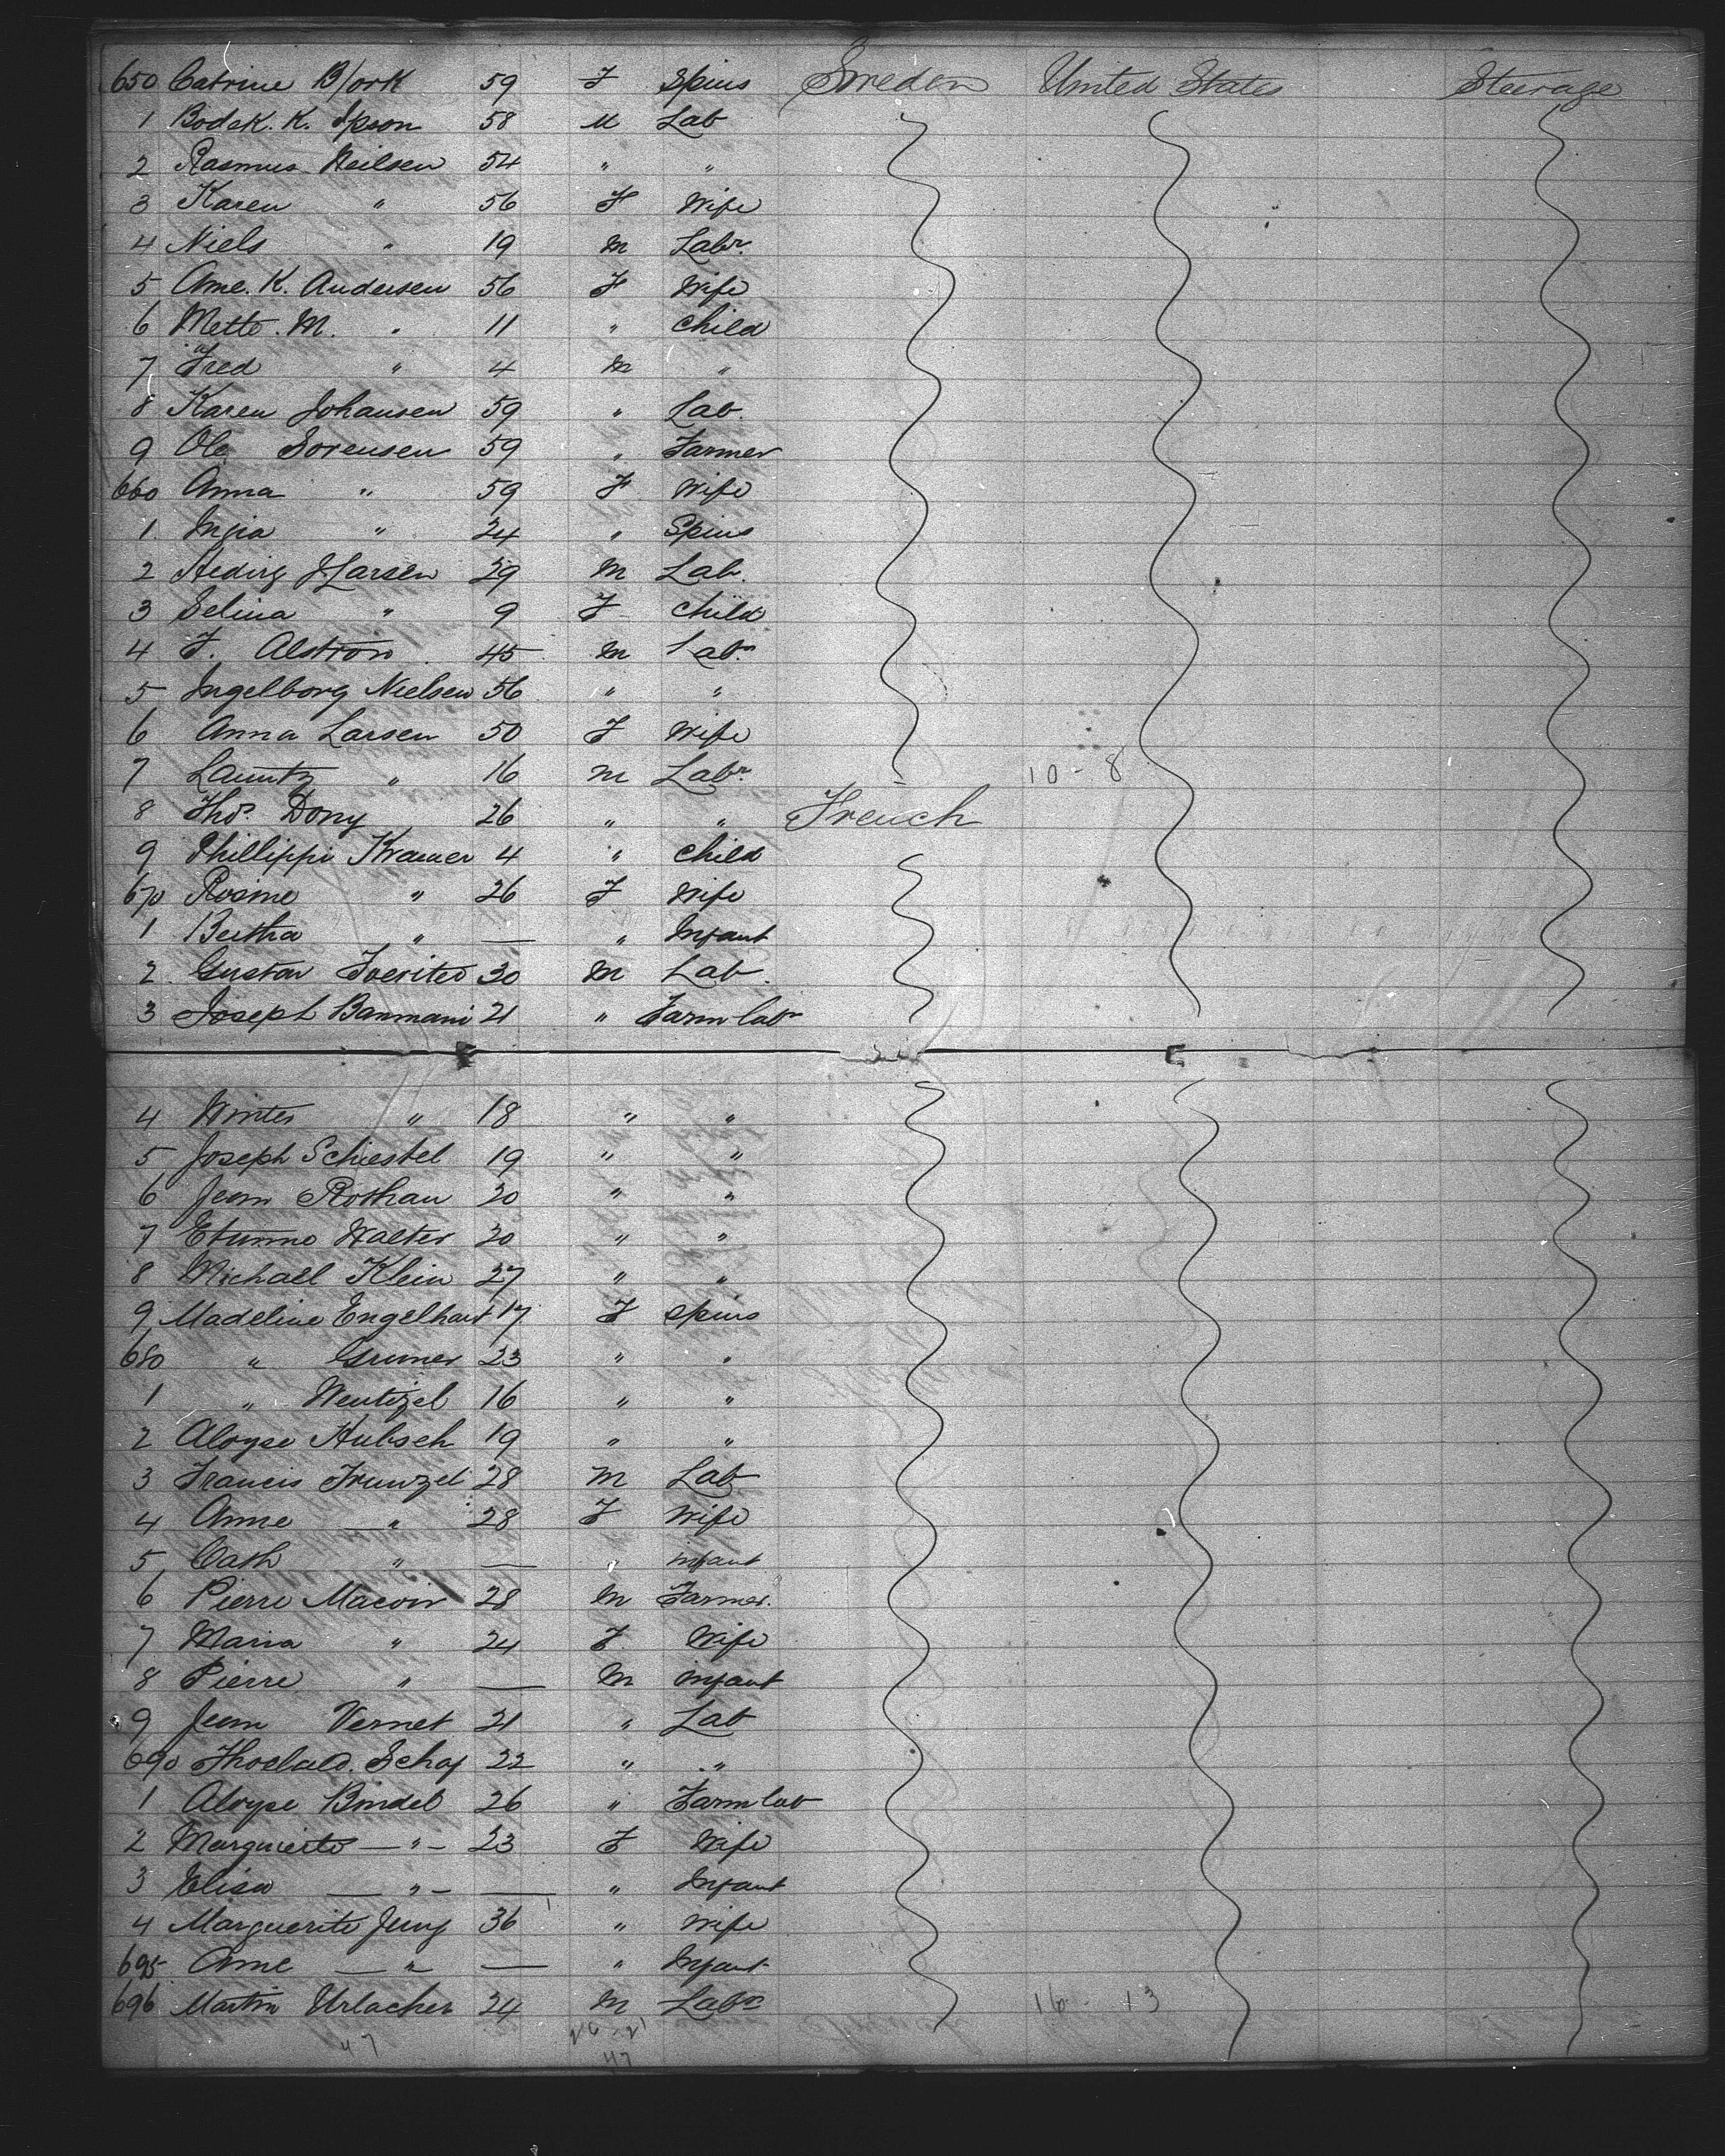 650 Catrine Bjork 59 F Spins Sweden United States Steerage
1 Bodek. K. Ipson 58 M Lab
2 Rasmus Neilsen 54 " "
3 Karen " 56 F Wife
4 Niels " 19 m Labr.
5 Ane. K. Andersen 56 F Wife
6 Mette. M. " 11 " child
7 Fred " 4 m "
8 Karen Johansen 59 " Lab.
9 Ole Sorensen 59 " Farmer
660 Anna " 59 F Wife
1. " 24 " Spins
2 J Larsen 29 m Lab.
3 Selina " 9 F child
4 F. Alstrom 45 m Labr
5 Ingelborg Nielsen 56 " "
6 Anna Larsen 50 F Wife
7 Lauritz " 16 m Labr. 10-8
8 Thos. Dony 26 " " French
9 Phillippi Kramer 4 " child
670 Rosine " 26 F Wife
1 Bertha " — " Infant
2 Gustav 30 m Lab.
3 Joseph Banmani 21 " Farm labr
4 " 18 " "
5 Joseph Schiestel 19 " "
6 Jean Rothau 20 " "
7 Etienne Walter 20 " "
8 Michael Klein 27 " "
9 Madeline Engelhart 17 F spins
680 " Gruner 23 " "
1 " Wentzel 16 " "
2 Aloyse Hubsch 19 " "
3 Francis Frunzel 28 m Lab
4 Anne — " 28 F Wife
5 Cath " — " infant
6 Pierre Macoir 28 m Farmer.
7 Maria " 24 F Wife
8 Pierre " — m infant
9 Jean Vernet 21 " Lab
690 Schaf 22 " "
1 Aloyse Bindel 26 " Farm lab
2 Marguerite — " — 23 F Wife
3 Elisa — " — — " Infant
4 Marguerite Jung 36 " wife
695 Ame — " — " Infant
696 Martin Urlacher 24 m Labr 16-13
47 26-21
47